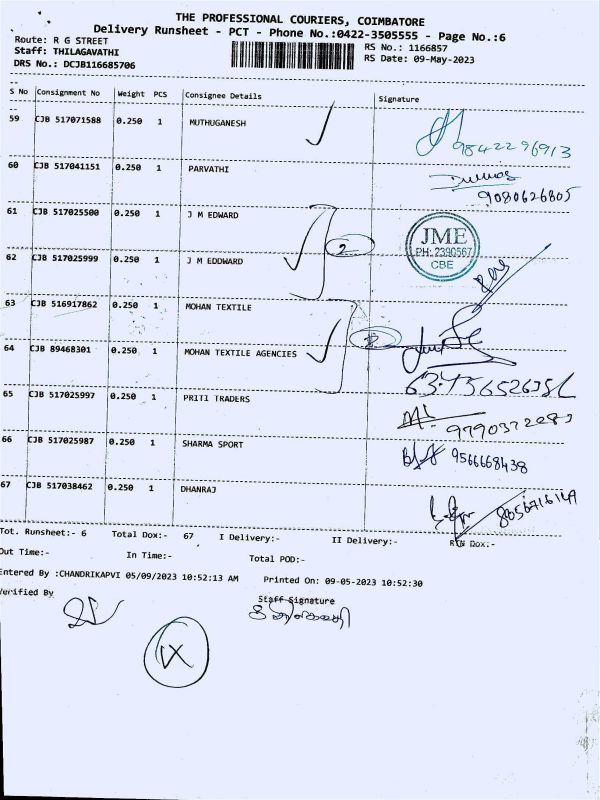 THE PROFESSIONAL COURIERS, COIMBATORE
Delivery Runsheet - PCT - Phone No.:0422-3505555 - Page No.:6
Route: R G STREET RS No.: 1166857
Staff: THILAGAVATHI RS Date: 09-May-2023
DRS No.: DCJB116685706
S No Consignment No Weight PCS Consignee Details Signature
59 CJB 517071588 0.250 1 MUTHUGANESH
9842296913
60 CJB 517041151 0.250 1 PARVATHI
9080626805
61 CJB 517025500 0.250 1 J M EDWARD
2
JME
PH: 2390567
CBE
62 CJB 517025999 0.250 1 J M EDDWARD
63 CJB 516917862 0.250 1 MOHAN TEXTILE
64 CJB 89468301 0.250 1 MOHAN TEXTILE AGENCIES
65 CJB 517025997 0.250 1 PRITI TRADERS
66 CJB 517025987 0.250 1 SHARMA SPORT 9566668438
67 CJB 517038462 0.250 1 DHANRAJ
Tot. Runsheet:- 6 Total Dox:- 67 I Delivery:- II Delivery:- RTN Dox:-
Out Time:- In Time:- Total POD:-
Entered By :CHANDRIKAPVI 05/09/2023 10:52:13 AM Printed On: 09-05-2023 10:52:30
Verified By Staff Signature
IX